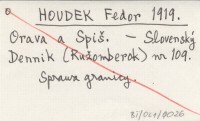 HOUDEK Fedor 1919.
Orava a Spiš. – Slovenský
Dennik (Ružomberok) nr 109.
Sprawa granicy.